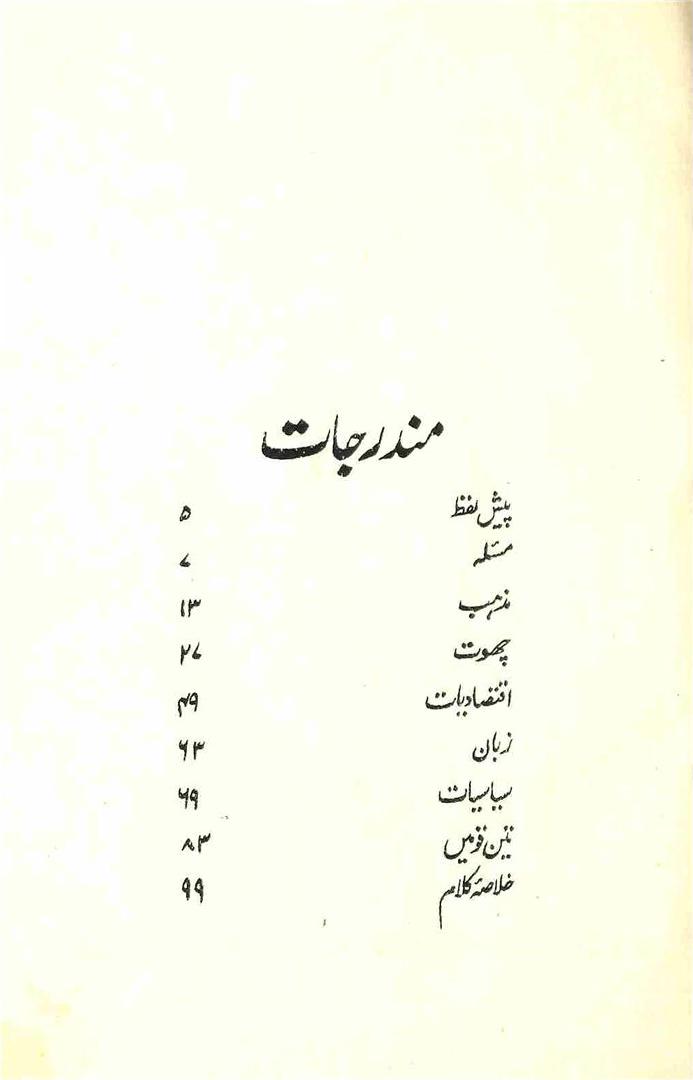 مندرجات
پیش لفظ ۵
مسئلہ ۷
مذہب ۱۳
چھوت ۲۷
اقتصادیات ۴۹
زبان ۶۳
سیاسیات ۶۹
تین قومیں ۸۳
خلاصۂ کلام ۹۹